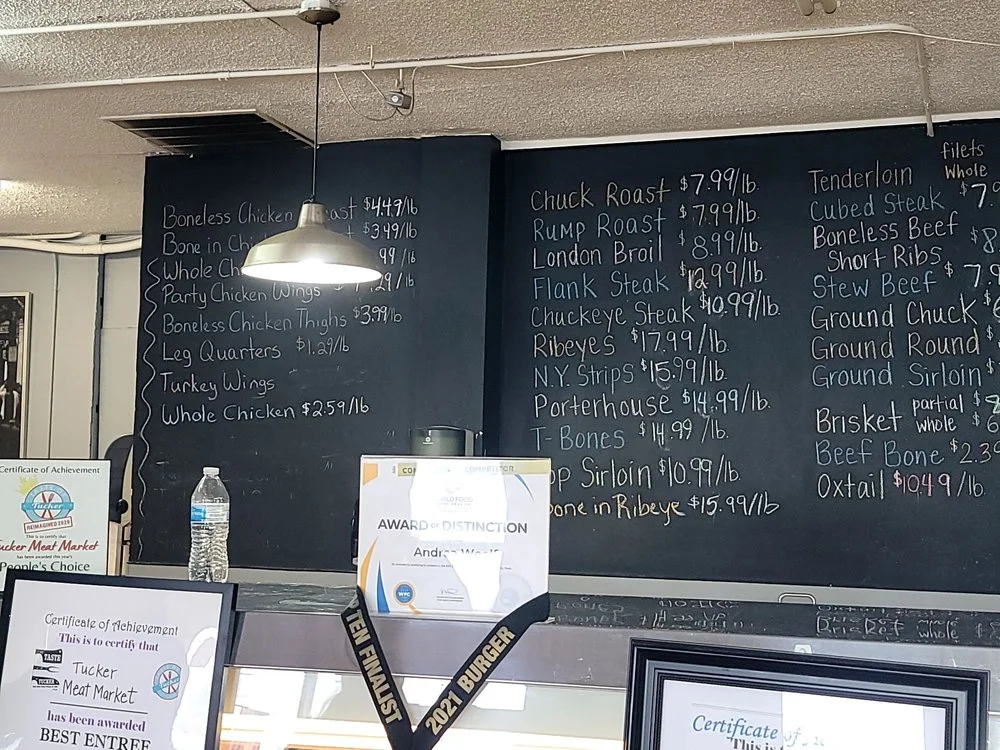 Boneless Chicken $4.49/lb
Bone in $3.49/lb
Whole
Party Chicken Wings
Boneless Chicken Thighs $3.99/lb
Leg Quarters $1.29/lb
Turkey Wings
Whole Chicken $2.59/lb
Chuck Roast $7.99/lb.
Rump Roast $7.99/lb.
London Broil $8.99/lb.
Flank Steak $12.99/lb.
Chuckeye Steak $10.99/lb.
Ribeyes $17.99/lb.
N.Y. Strips $15.99/lb.
Porterhouse $14.99/lb.
T-Bones $14.99/lb.
Sirloin $10.99/lb.
Bone in Ribeye $15.99/lb
Tenderloin filets
whole
Cubed Steak
Boneless Beef
Short Ribs
Stew Beef
Ground Chuck
Ground Round
Ground Sirloin
Brisket partial
whole
Beef Bone
Oxtail $10.49/lb.
Certificate of Achievement
Tucker
REIMAGINED 2020
This is to certify that
Tucker Meat Market
has been awarded this year's
People's Choice
Certificate of Achievement
This is to certify that
TASTE
TUCKER
Tucker
Meat Market
has been awarded
BEST ENTREE
COMPETITOR
AWARD OF DISTINCTION
WFC
TEN FINALIST
2021 BURGER
Brisket whole
Certificate of
This is